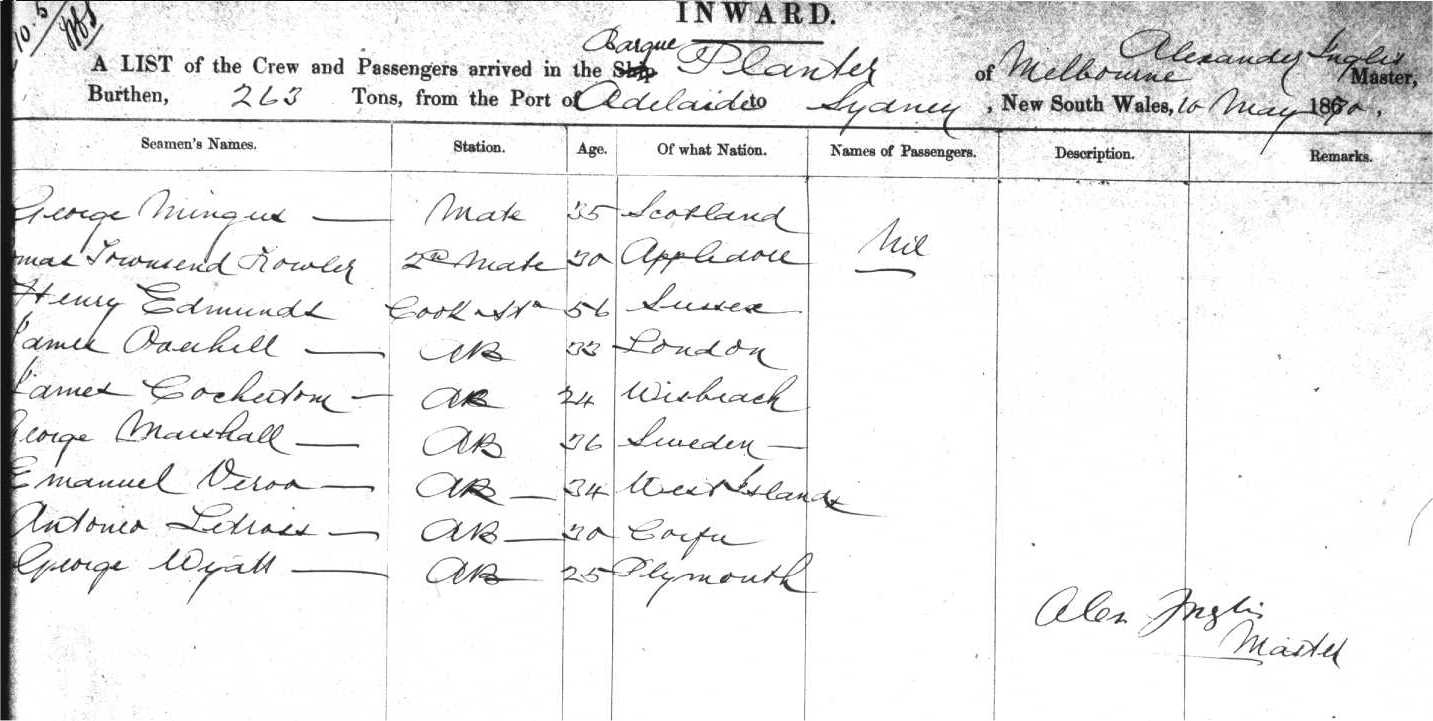 10.5
INWARD.
Barque
A LIST of the Crew and Passengers arrived in the Ship Planter of Melbourne Alexander Inglis Master,
Burthen, 263 Tons, from the Port of Adelaide to Sydney, New South Wales, 10 May 1870.
Seamen's Names. Station. Age. Of what Nation. Names of Passengers. Description. Remarks.
George Mingus — Mate 35 Scotland
Nil
omas Townsend Fowler 2nd Mate 30 Appledore
Henry Edmunds Cook & Std 56 Sussex
James — AB 33 London
James — AB 24 Wisbeach
George Marshall — AB 36 Sweden —
Emanuel — AB — 34 West Islands
Antonio — AB — 30 Corfu
George Wyatt — AB 25 Plymouth
Alex Inglis
Master